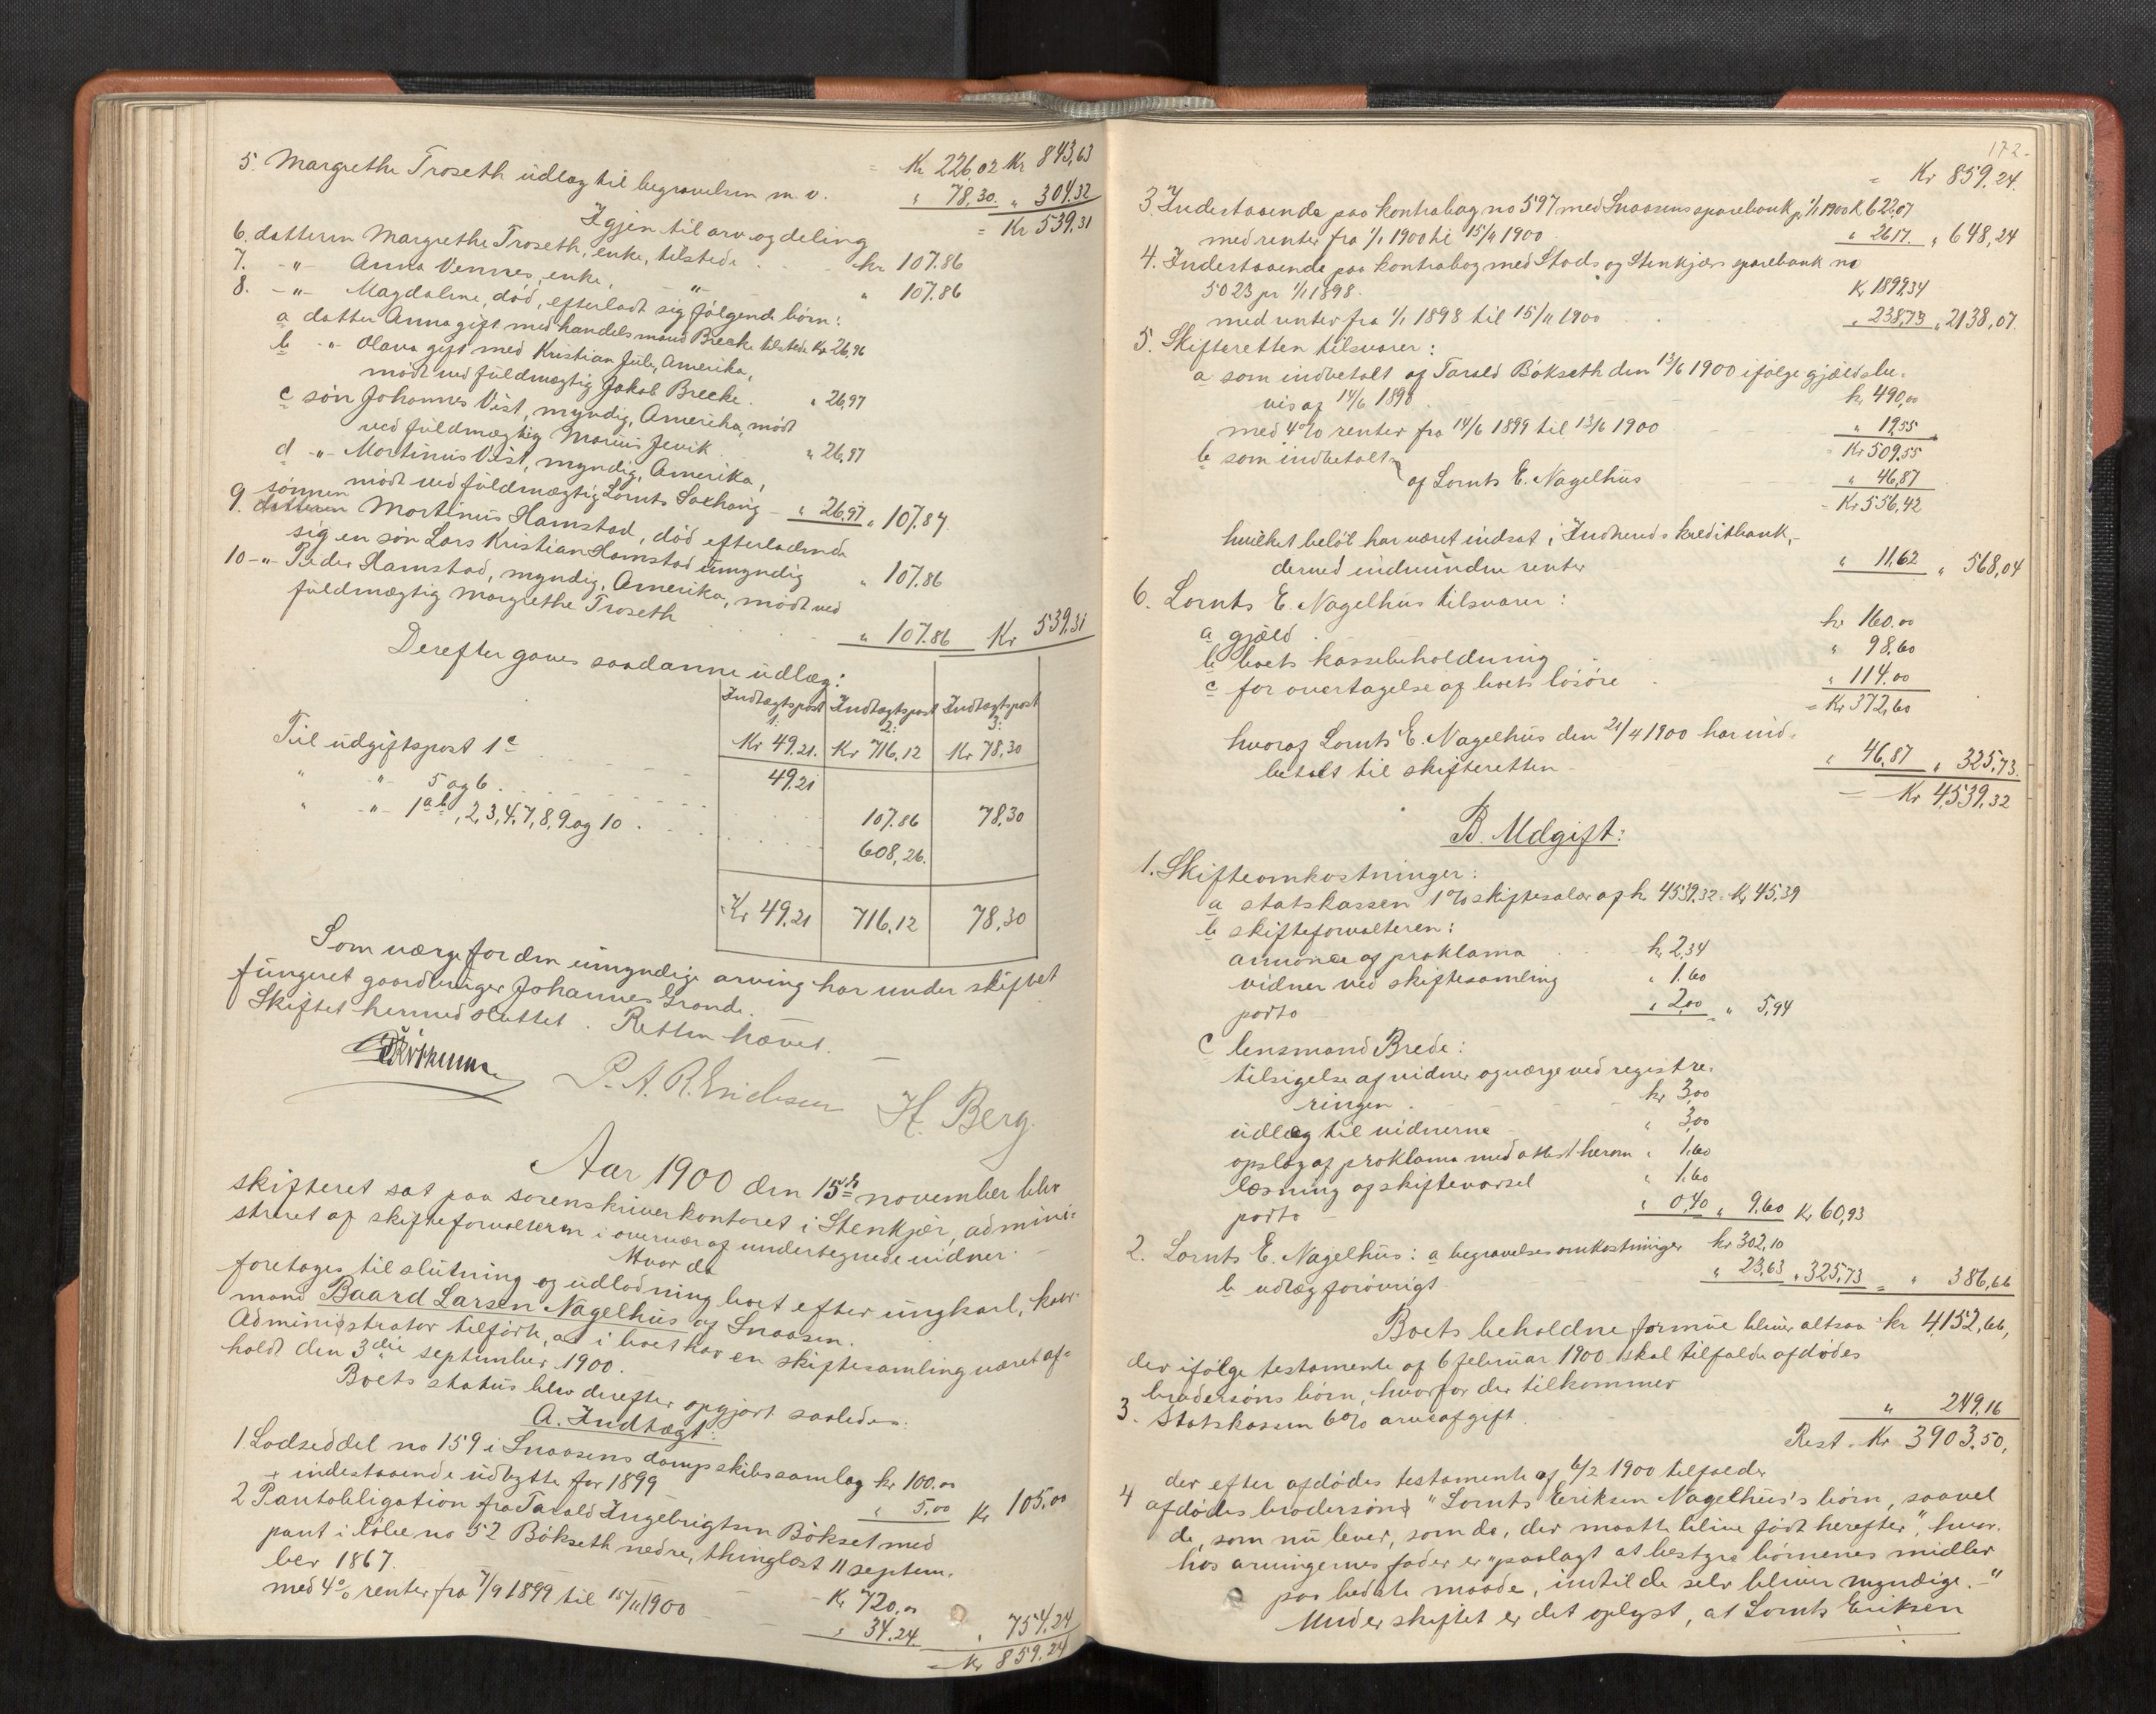 = Kr 226,02 Kr 843,63
5. Margrethe Troseth udlæg til begravelsen m. v. " 78,30. " 304.32
Igjen til arv og deling = Kr 539,31
6. datteren Margrethe Troseth, enke, tilstede . . kr 107.86
7. -"- Anna Vennes, enke, -"- " 107.86
8. -"- Magdalene, død, efterladt sig følgende børn:
a datter Anna gift med handelsmand Brecke tilstede Kr 26,96
b -"- Olava gift med Kristian Jule, Amerika,
mødt ved fuldmægtig Jakob Brecke . " 26,97
c søn Johannes Vist, myndig, Amerika, mødt
ved fuldmægtig Marius Jevik " 26,97
d -"- Martinus Vist, myndig, Amerika,
mødt ved fuldmægtig Lornts Saxhaug - " 26,97 " 107.87.
sønnen
9. datteren Martinus Hamstad, død efterladende
sig en søn Lars Kristian Hamstad umyndig " 107.86
10 -"- Peder Hamstad, myndig, Amerika, mødt ved
fuldmægtig Margrethe Troseth . . . " 107.86 Kr 539.31
Derefter gaves saadanne udlæg:
Indtægtspost 1: Indtægtspost 2: Indtægtspost 3:
Kr 49.21. Kr 716,12 Kr 78,30
Til udgiftspost 1 c 49.21
" -"- 5 og 6 107.86 78,30
" -"- 1 a b, 2, 3, 4, 7, 8, 9 og 10 . 608,26.
Kr 49.21 716.12 78,30
Som værge for den umyndige arving har under skiftet
fungeret gaardbruger Johannes Grande.
Skiftet hermed sluttet. Retten hævet. —
P. A. R. Erichsen H. Berg.
Aar 1900 den 15de november blev
skifteret sat paa sorenskriverkontoret i Stenkjær, admini-
streret af skifteforvalteren i overvær af undertegnede vidner. —
Hvor da
foretoges til slutning og udlodning boet efter ungkarl, kaar-
mand Baard Larsen Nagelhus af Snaasen.
Administrator tilførte, at i boet har en skiftesamling været af-
holdt den 3die september 1900.
Boets status blev derefter opgjort saaledes:
A. Indtægt:
1. Lodseddel no 159 i Snaasens dampskibssamlag kr 100.00
+ indestaaende udbytte for 1899 " 5,00 Kr 105.00
2 Pantobligation fra Tarald Ingebrigtsen Bökset med
pant i løbe no 52 Bökseth nedre, thinglæst 11 septem-
ber 1867. - Kr 720,00
med 4% renter fra 7/9 1899 til 15/11 1900 - " 34.24. " 754,24
= Kr 859.24
172.
= Kr 859,24.
3. Indestaaende paa kontrabog no 597 med Snaasens sparebank pr 1/1 1900 K 622,07
med renter fra 1/1 1900 til 15/11 1900 " 26.17. " 648,24
4. Indestaaende paa kontrabog med Stods og Stenkjærs sparebank no
5023 pr 1/1 1898. Kr 1899,34
med renter fra 1/1 1898 til 15/11 1900 . " 238,73 " 2138,07.
5. Skifteretten tilsvarer:
a som indbetalt af Tarald Bökseth den 13/6 1900 ifølge gjældsbe-
vis af 14/6 1898 . kr 490,00
med 4% renter fra 14/6 1899 til 13/6 1900 - - " 19,55
= Kr 509.55
b som indbetalt af Lornts E. Nagelhus " 46,87
= Kr 556,42
hvilket beløb har været indsat i Indherreds kreditbank,-
derved indvundne renter " 11,62 " 568,04
6. Lornts E. Nagelhus tilsvarer:
a gjæld . kr 160.00
b boets kassebeholdning " 98.60
c for overtagelse af boets løsøre . " 114.00
= Kr 372,60
hvoraf Lornts E. Nagelhus den 21/4 1900 har ind-
betalt til skifteretten " 46.87 " 325,73.
= Kr 4,539,32
B. Udgift:
1. Skifteomkostninger:
a statskassen 1% skiftesalær af kr. 4539.32 = Kr 45,39
b skifteforvalteren:
annonce af proklama . . kr 2,34
vidner ved skiftesamling " 1.60
porto " 2,00 " 5,94
c lensmand Brede:
tilsigelse af vidner og værge ved registre-
ringen . - - kr 3,00
udlæg til vidnerne " 3,00
opslag af proklama med attest herom " 1.60
læsning af skiftevarsel " 1.60
porto " 0,40 " 9,60 Kr 60,93
2. Lornts E. Nagelhus: a begravelsesomkostninger kr 302,10
b udlæg forøvrigt " 23,63 " 325,73 = " 386,66
Boets beholdne formue bliver altsaa kr 4,152,66,
der ifølge testamente af 6 februar 1900 skal tilfalde afdødes
brodersøns børn, hvorfor der tilkommer
3. Statskassen 6% arveafgift . " 249,16
Rest . Kr 3903,50,
der efter afdødes testamente af 6/2 1900 tilfalder
4 afdødes brodersøns "Lornts Eriksen Nagelhus's børn, saavel
de, som nu lever, som de, der maatte blive født herefter", hvor-
hos arvingernes fader er "paalagt at bestyre børnenes midler
paa bedste maade, indtil de selv bliver myndige. -"
Under skiftet er det oplyst, at Lornts Eriksen